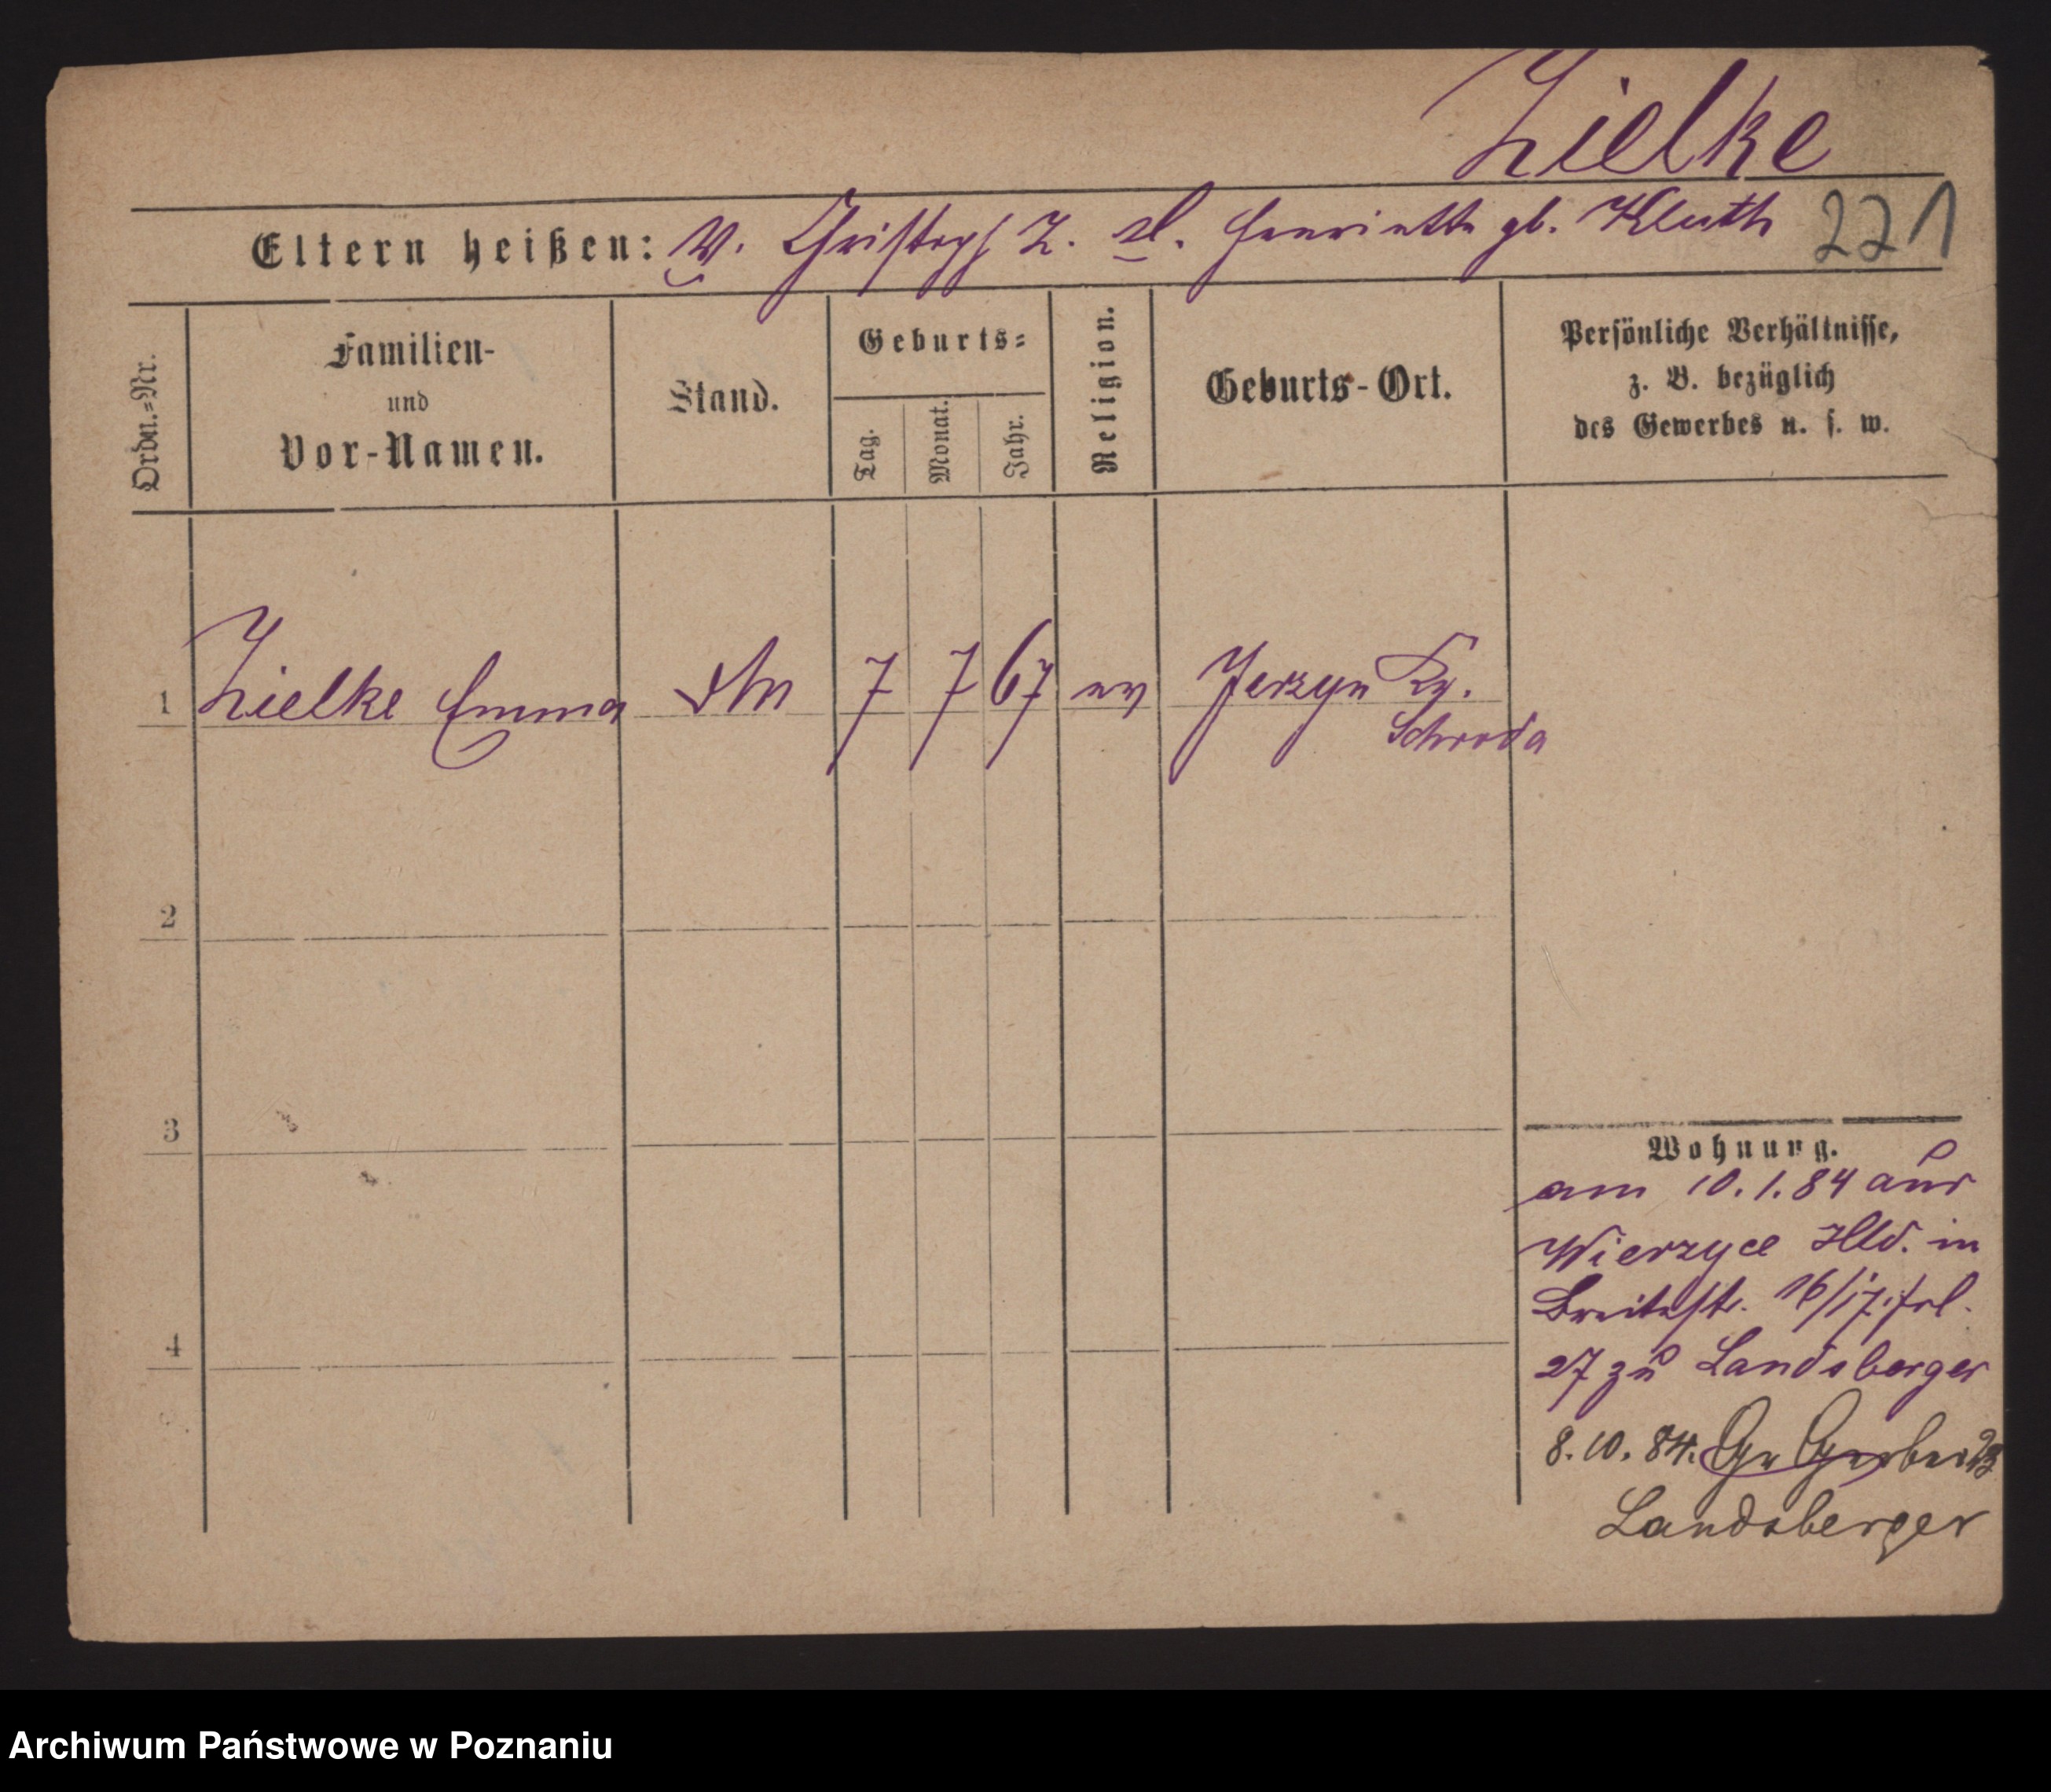 Zielke
Eltern heißen: V. Christoph Z. M. Henriette gb. Kluth 221
Ordn.=Nr.
Familien-
und
Vor-Namen.
Stand.
Geburts=
Tag.
Monat.
Jahr.
Religion.
Geburts-Ort.
Persönliche Verhältnisse,
z. B. bezüglich
des Gewerbes u. s. w.
1 Zielke Emma 7 7 67 ev Jerzyn Kr.
Schroda
2
3
4
Wohnung.
am 10.1.84 aus
Wierzyce Hld. in
Breitestr. 16/17.
27 zu Landsberger
8.10.84. Gr Gerber 23
Landsberger
Archiwum Państwowe w Poznaniu